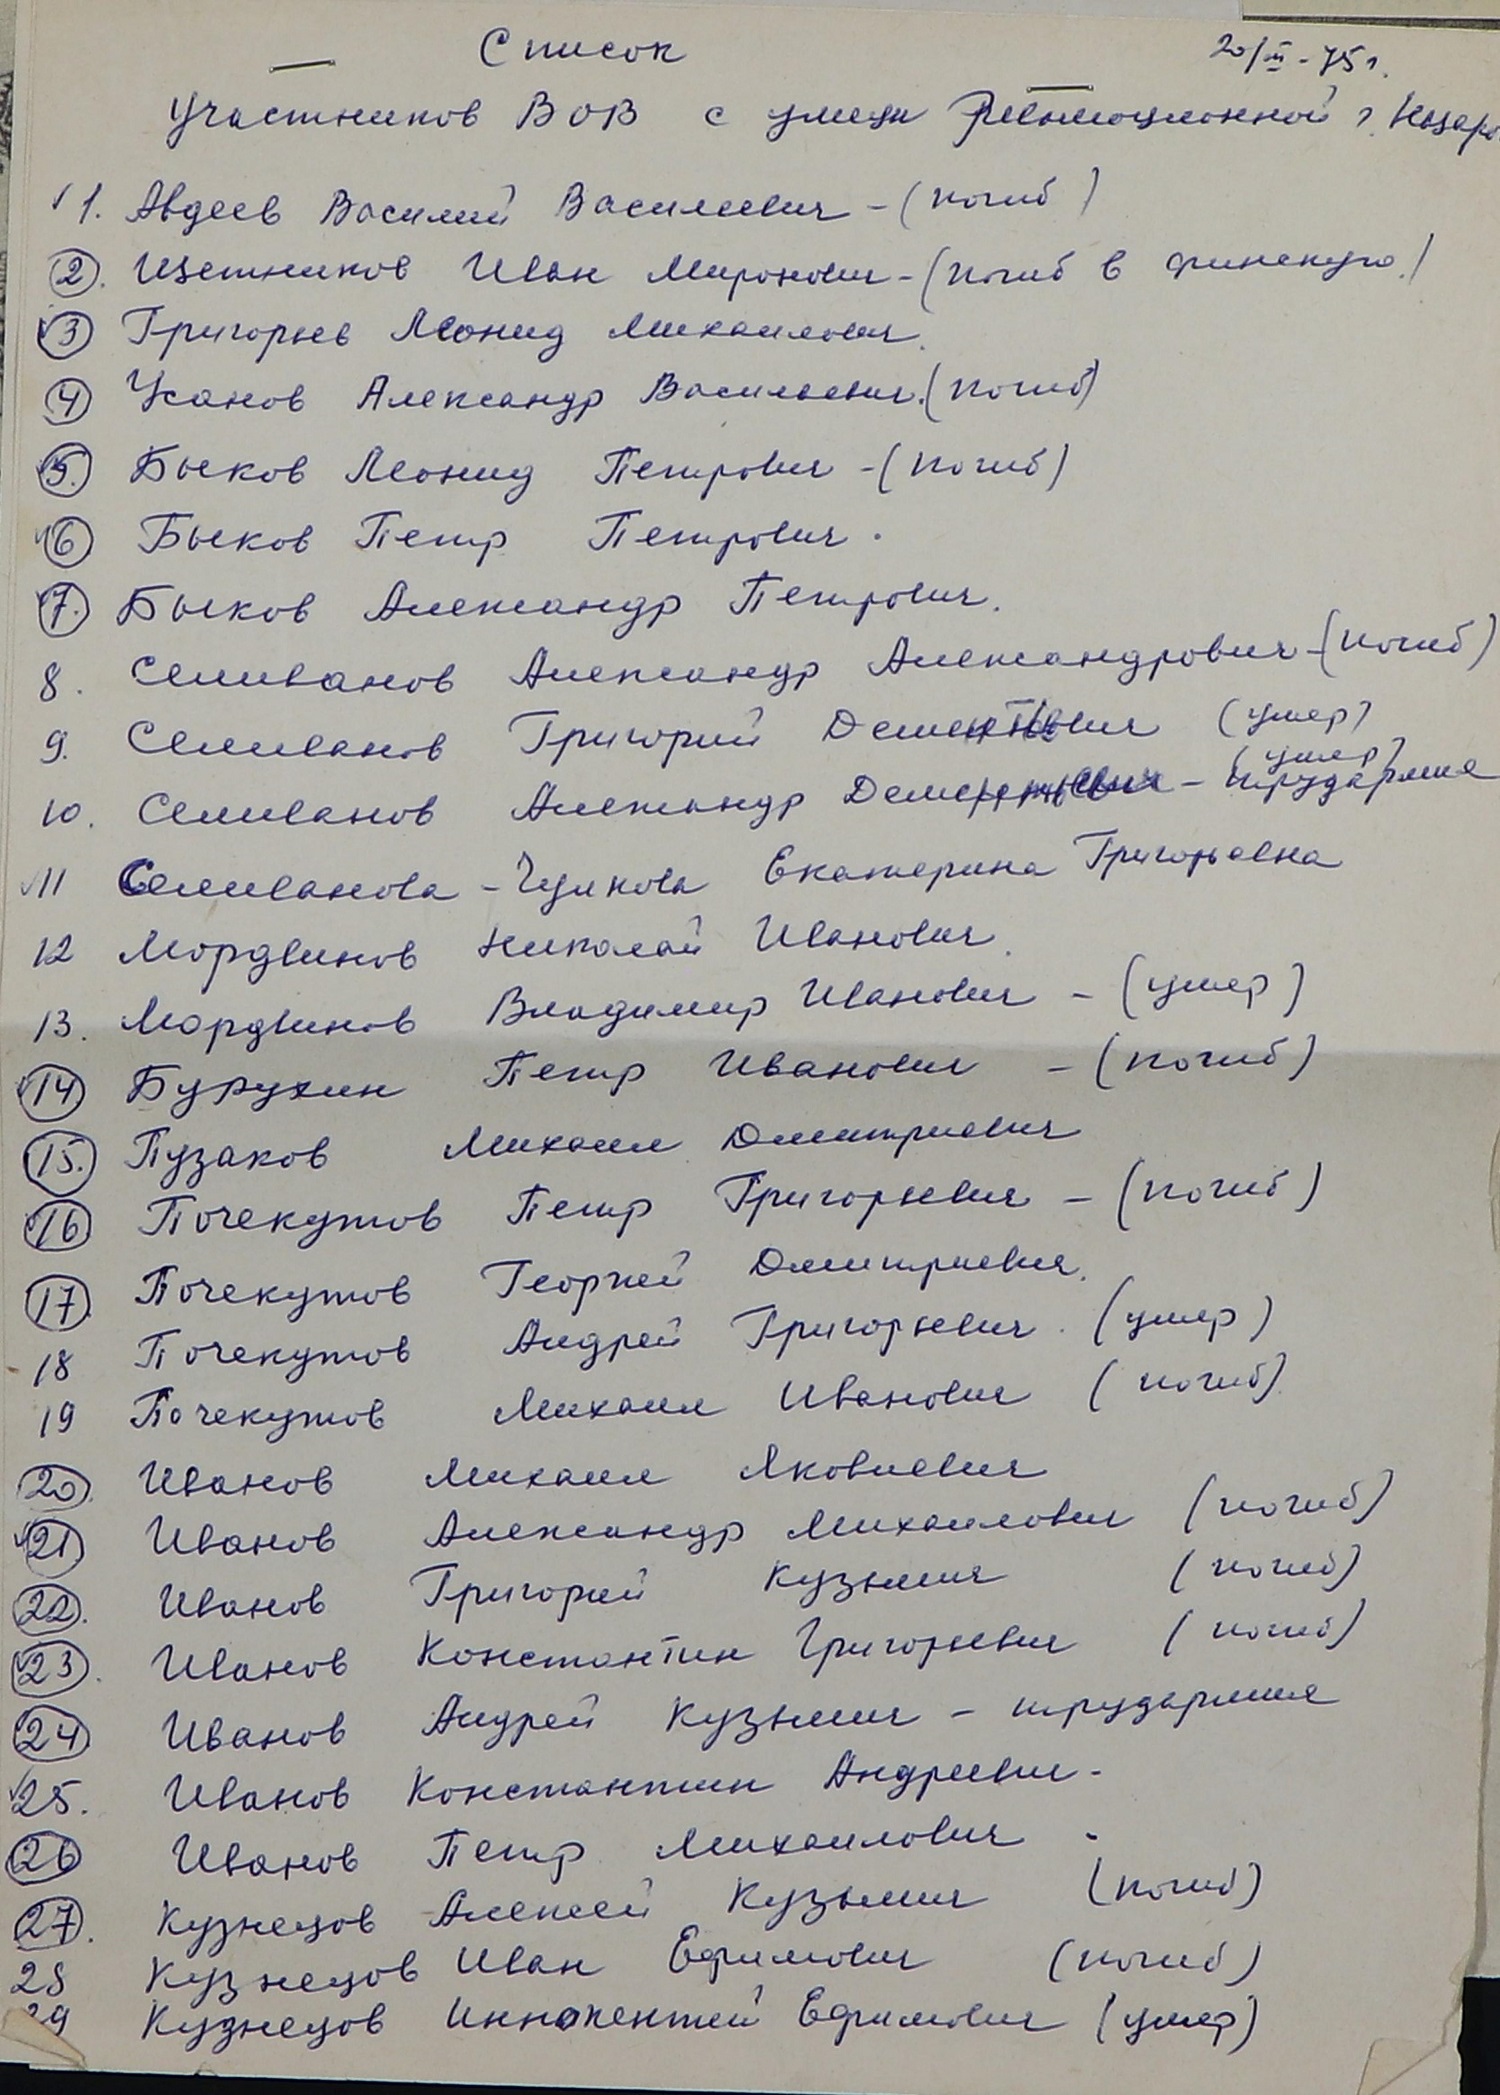 Список
20/III-75г.
Участников ВОВ с улици Революционной г. Назаро
1. Авдеев Василий Василиевич - (погиб)
2. Цветников Иван Миронович - (погиб в финскую.)
3 Григорьев Леонид Михаилович.
4 Усанов Александр Васильевич. (погиб)
5. Быков Леонид Петрович - (погиб)
6 Быков Петр Петрович.
7. Быков Александр Петрович.
8. Селиванов Александр Александрович - (погиб)
9. Селиванов Григорий Дементьевич (умер)
(умер)
10. Селиванов Александр Дементьевич - трудармия
11 Селиванова - Чулкова Екатерина Григорьевна
12 Мордвинов Николай Иванович.
13. Мордвинов Владимир Иванович - (умер)
14 Бурухин Петр Иванович - (погиб)
15. Пузаков Михаил Дмитриевич
16 Почекутов Петр Григорьевич - (погиб)
17 Почекутов Георгий Дмитриевич.
18 Почекутов Андрей Григорьевич. (умер)
19 Почекутов Михаил Иванович (погиб)
20. Иванов Михаил Яковлевич
21 Иванов Александр Михаилович (погиб)
22. Иванов Григорий Кузьмич (погиб)
23. Иванов Константин Григорьевич (погиб)
24 Иванов Андрей Кузьмич - трудармия
25. Иванов Константин Андреевич -
26 Иванов Петр Михаилович -
27. Кузнецов Алексей Кузьмич (погиб)
28 Кузнецов Иван Ефимович (погиб)
29 Кузнецов Иннокентий Ефимович (умер)